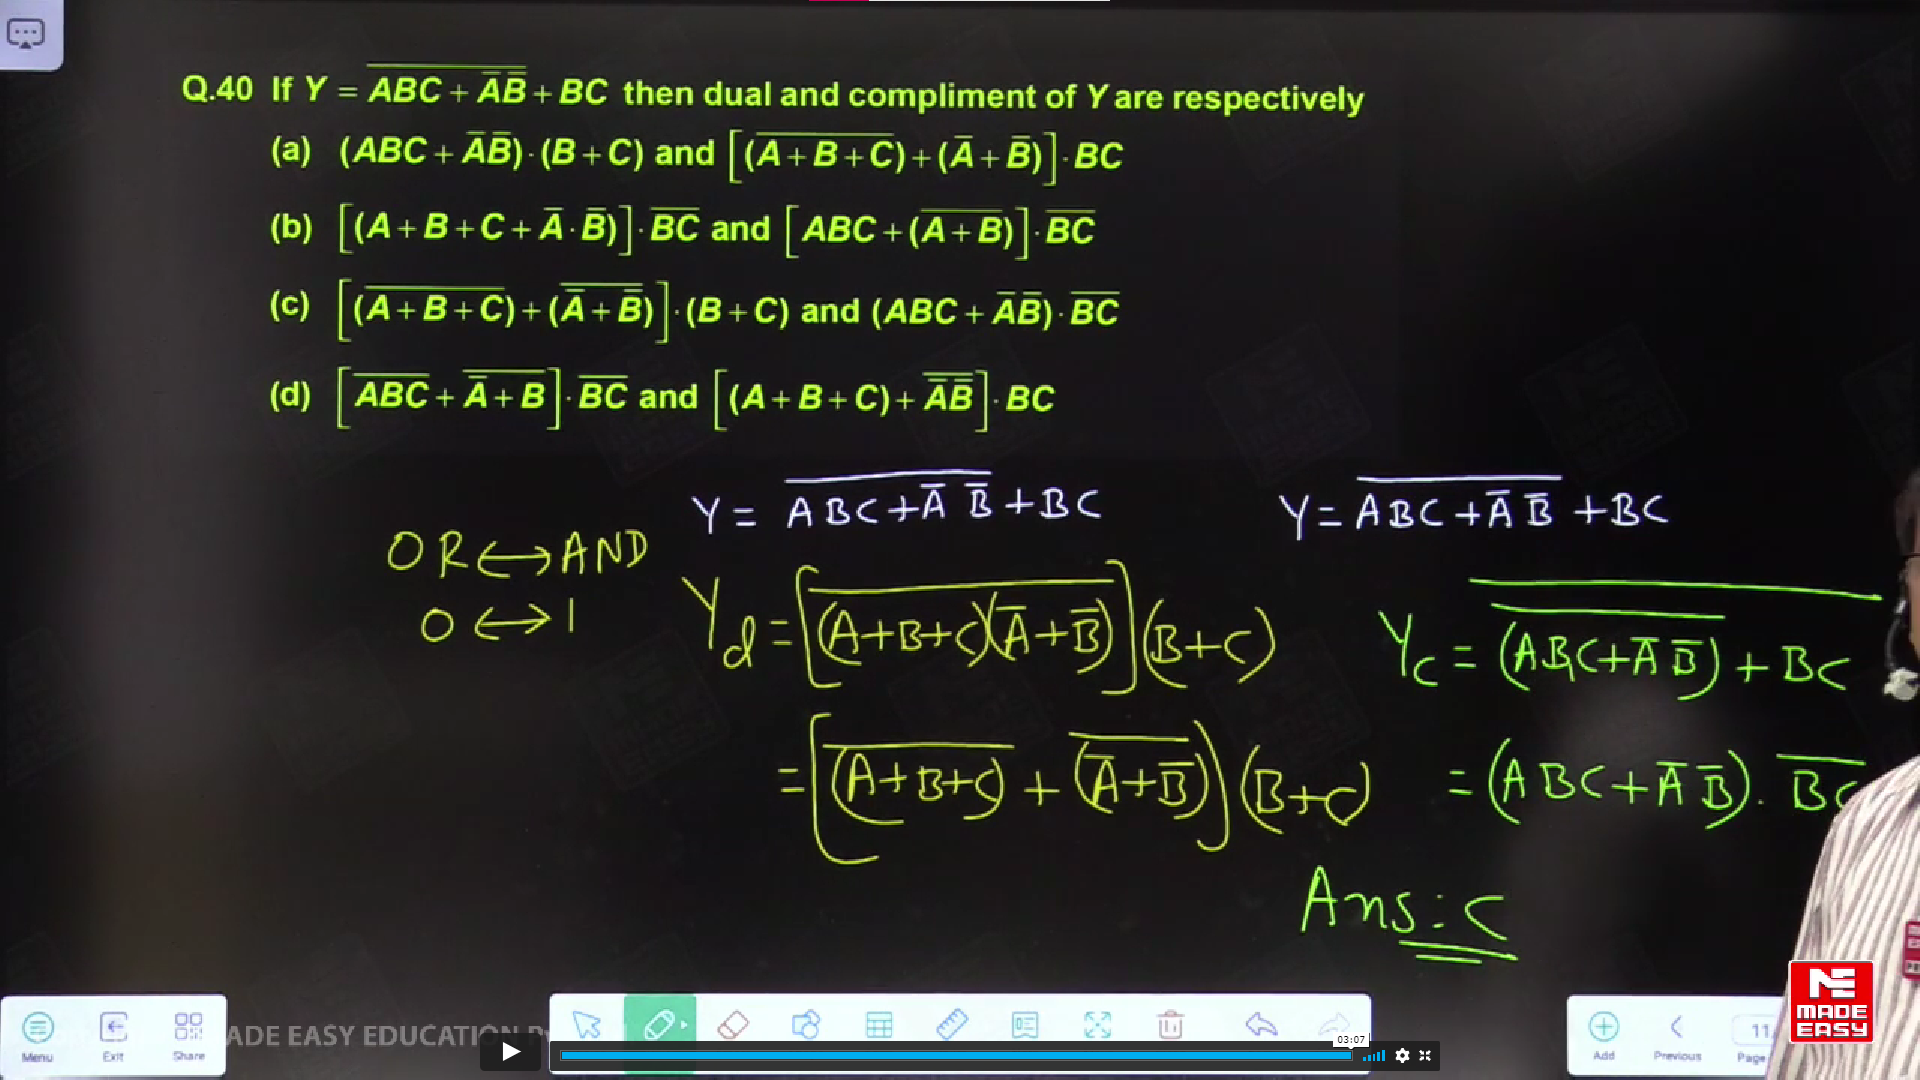 Q.40 If Y = \overline{ABC + A̅B̅} + BC then dual and compliment of Y are respectively
(a) (ABC + A̅B̅)·(B + C) and [(\overline{A + B + C}) + (A̅ + B̅)]·BC
(b) [(A + B + C + A̅·B̅)]·\overline{BC} and [ABC + (\overline{A + B})]·\overline{BC}
(c) [(\overline{A + B + C}) + (\overline{A̅ + B̅})]·(B + C) and (ABC + A̅B̅)·\overline{BC}
(d) [\overline{ABC} + \overline{A̅ + B}]·\overline{BC} and [(A + B + C) + \overline{A̅B̅}]·BC
Y = \overline{ABC + A̅ B̅} + BC
Y = \overline{ABC + A̅ B̅} + BC
OR ↔ AND
0 ↔ 1
Y_d = [\overline{(A+B+C)(A̅+B̅)}](B+C)
= [\overline{(A+B+C)} + \overline{(A̅+B̅)}](B+C)
Y_c = \overline{\overline{(ABC + A̅ B̅)} + BC}
= (ABC + A̅ B̅). \overline{BC}
Ans: C
Menu
Exit
Share
ADE EASY EDUCATION P
03:07
Add
Previous
11
Page
ME
MADE
EASY